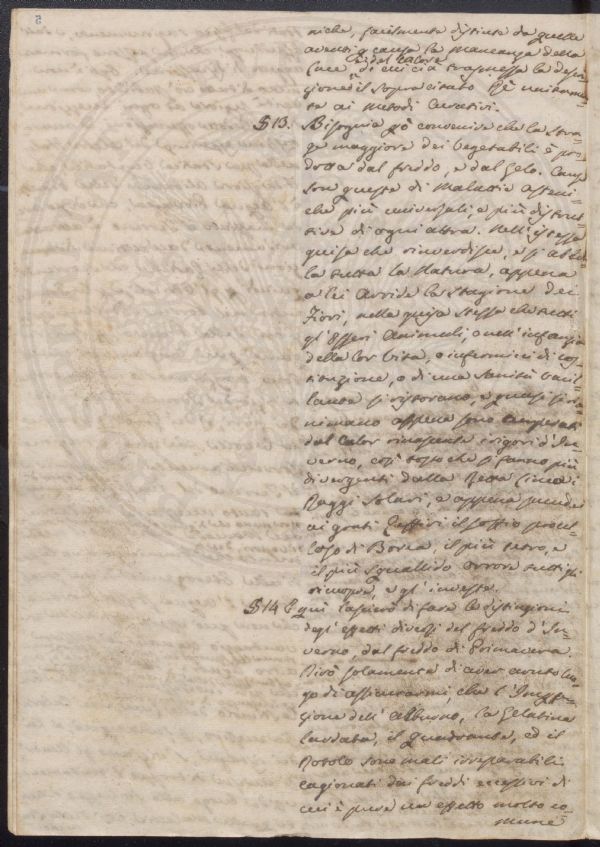 5
niche, facilmente distinte da quelle
aventi p causa la mancanza della
e del calore
luce di cui ci à trasmessa la descri-
zione il sopracitato Rè unitamen-
te ai metodi curativi.
§ 13. Bisogna pò convenire che la stra-
ge maggiore dei vegetabili è pro-
dotta dal freddo, e dal gelo. Cause
sono queste di malattie asteni-
che più universali, e più distrut-
tive di ogni altra. Nell'istessa
guisa che rinverdisce, e si abbel-
la tutta la Natura, appena
a lei arride la stagione dei
Fiori, nella guisa stessa che tutti
gl'Esseri Animali, o nell'infanzia
della lor vita, o infermicci di cos-
tituzione, o di una sanità vacil-
lante si ristorano, e quasi si ria-
nimano appena sono temperati
dal calor rinascente i rigori d'In-
verno, così tosto che si fanno più
divergenti dalla Retta linea i
Raggi Solari, e appena succede
ai grati Zeffiri il soffio procel-
loso di Borea, il più tetro, e
il più squallido orrore tutti gli
ricuopre, e gl'investe.
§ 14 E quì lascierò di fare la distinzione
degl'effetti diversi del freddo d'In-
verno, dal freddo di Primavera.
Dirò solamente di aver avuto luo-
go di assicurarmi, che l'
zione dell'Alburno, la Gelatina
, il Quadrante, ed il
Rotolo sono mali irreparabili
cagionati dai freddi eccessivi di
cui è pure un effetto molto co-
mune